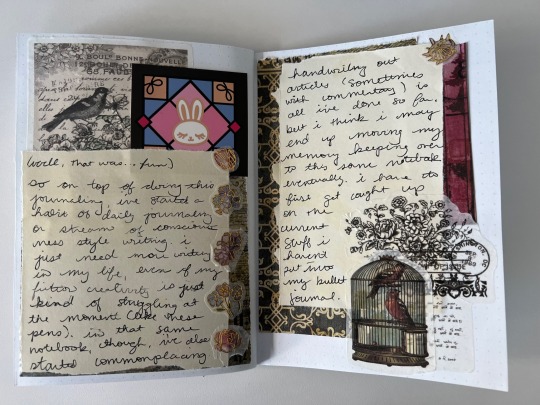 & BOULD BONNE-NOUVELLE
68. FAUB
(well, that was... fun)
so on top of doing this
journaling, ive started a
habit of daily journaling
or streams of conscious
ness style writing. i
just need more writing
in my life, even if my
fiction creativity is just
kind of struggling at
the moment (like these
pens). in that same
notebook, though, ive also
started commonplacing
handwriting out
articles (sometimes
with commentary) is
all i've done so far.
but i think i may
end up moving my
memory keeping over
to this same notebook
eventually. i have to
first get caught up
on the
current
stuff i
haven't
put into
my bullet
journal.